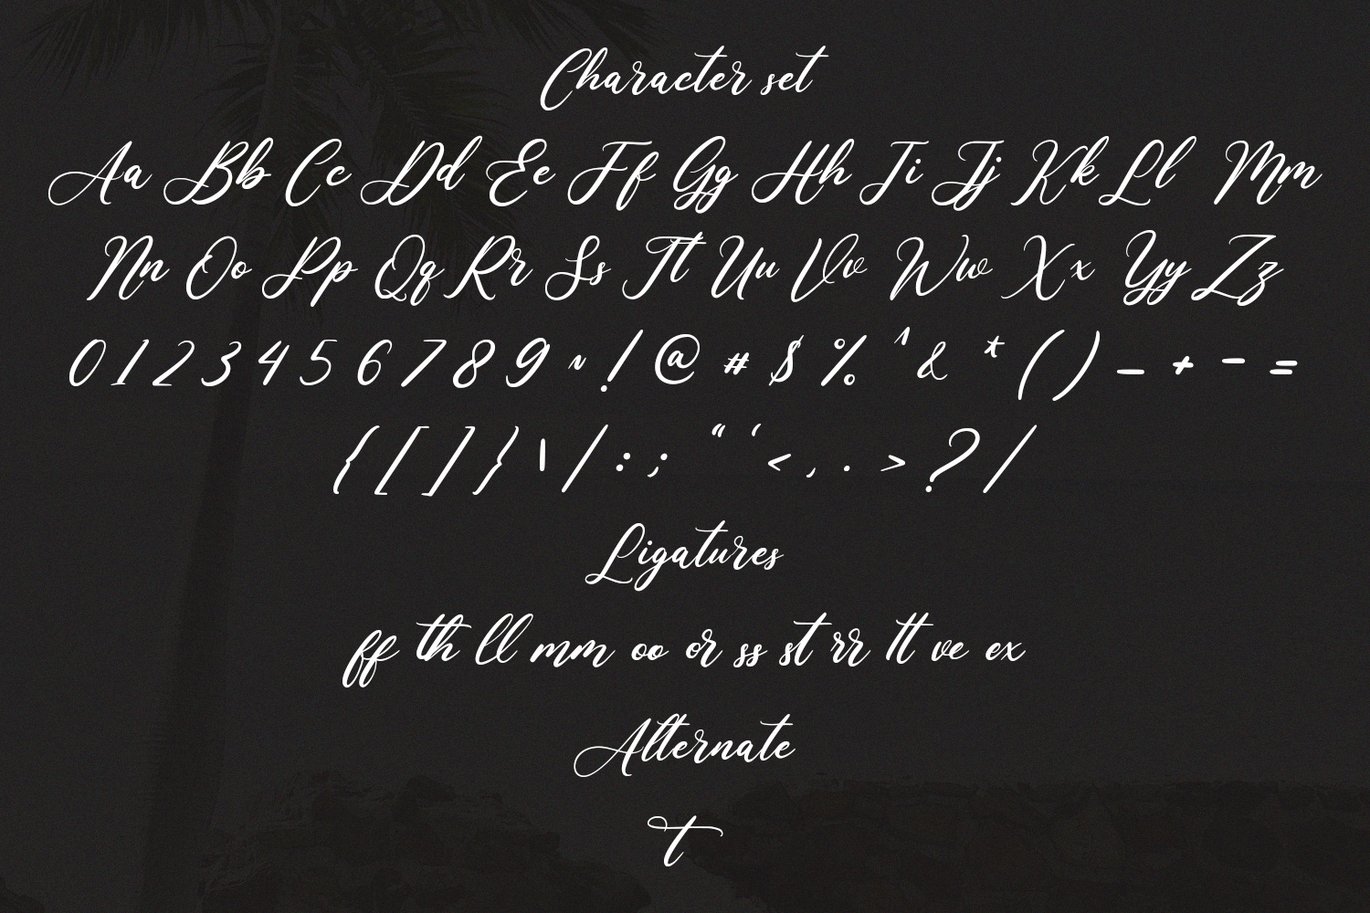 Character set
Aa Bb Cc Dd Ee Ff Gg Hh Ii Jj Kk Ll Mm
Nn Oo Pp Qq Rr Ss Tt Uu Vv Ww Xx Yy Zz
0 1 2 3 4 5 6 7 8 9 ~ ! @ # $ % ^ & * ( ) _ + - =
{ [ ] } \ / : ; “ ‘ < , . > ? /
Ligatures
ff th ll mm oo or ss st rr tt ve ex
Alternate
t